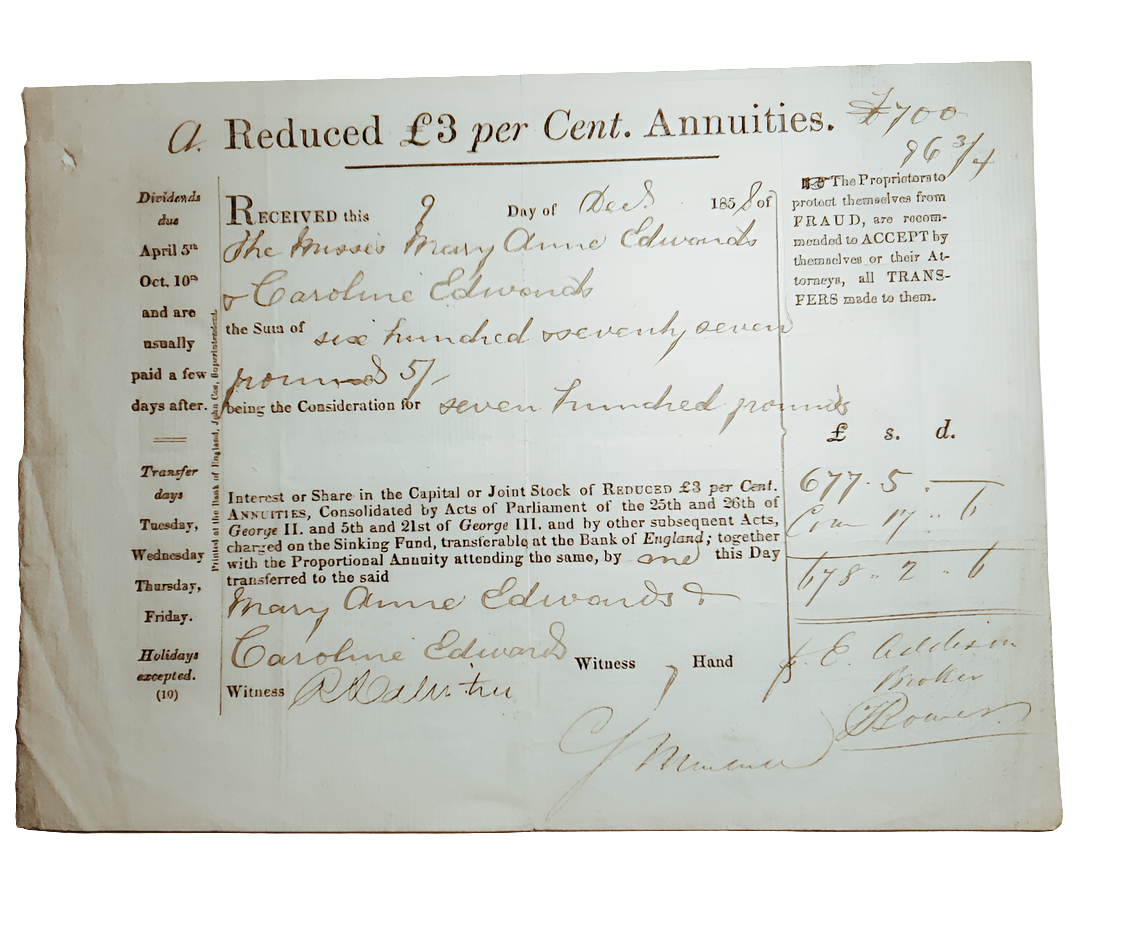 A. Reduced £3 per Cent. Annuities. £700
96 3/4
Dividends
due
April 5th
Oct. 10th
and are
usually
paid a few
days after.
Transfer
days
Tuesday,
Wednesday
Thursday,
Friday.
Holidays
excepted.
(10)
Printed at the Bank of England, John Coe, Superintendent.
RECEIVED this 9 Day of Decr. 1858 of
The Misses Mary Anne Edwards
& Caroline Edwards
the Sum of six hundred & seventy seven
pounds 5/-
being the Consideration for seven hundred pounds
Interest or Share in the Capital or Joint Stock of REDUCED £3 per Cent.
ANNUITIES, Consolidated by Acts of Parliament of the 25th and 26th of
George II. and 5th and 21st of George III. and by other subsequent Acts,
charged on the Sinking Fund, transferable at the Bank of England; together
with the Proportional Annuity attending the same, by me this Day
transferred to the said
Mary Anne Edwards &
Caroline Edwards
Witness Hand
Witness
The Proprietors to
protect themselves from
FRAUD, are recom-
mended to ACCEPT by
themselves or their At-
torneys, all TRANS-
FERS made to them.
£ s. d.
677. 5. —
Com 17 .. 6
678 .. 2 .. 6
E. Addison
Broker